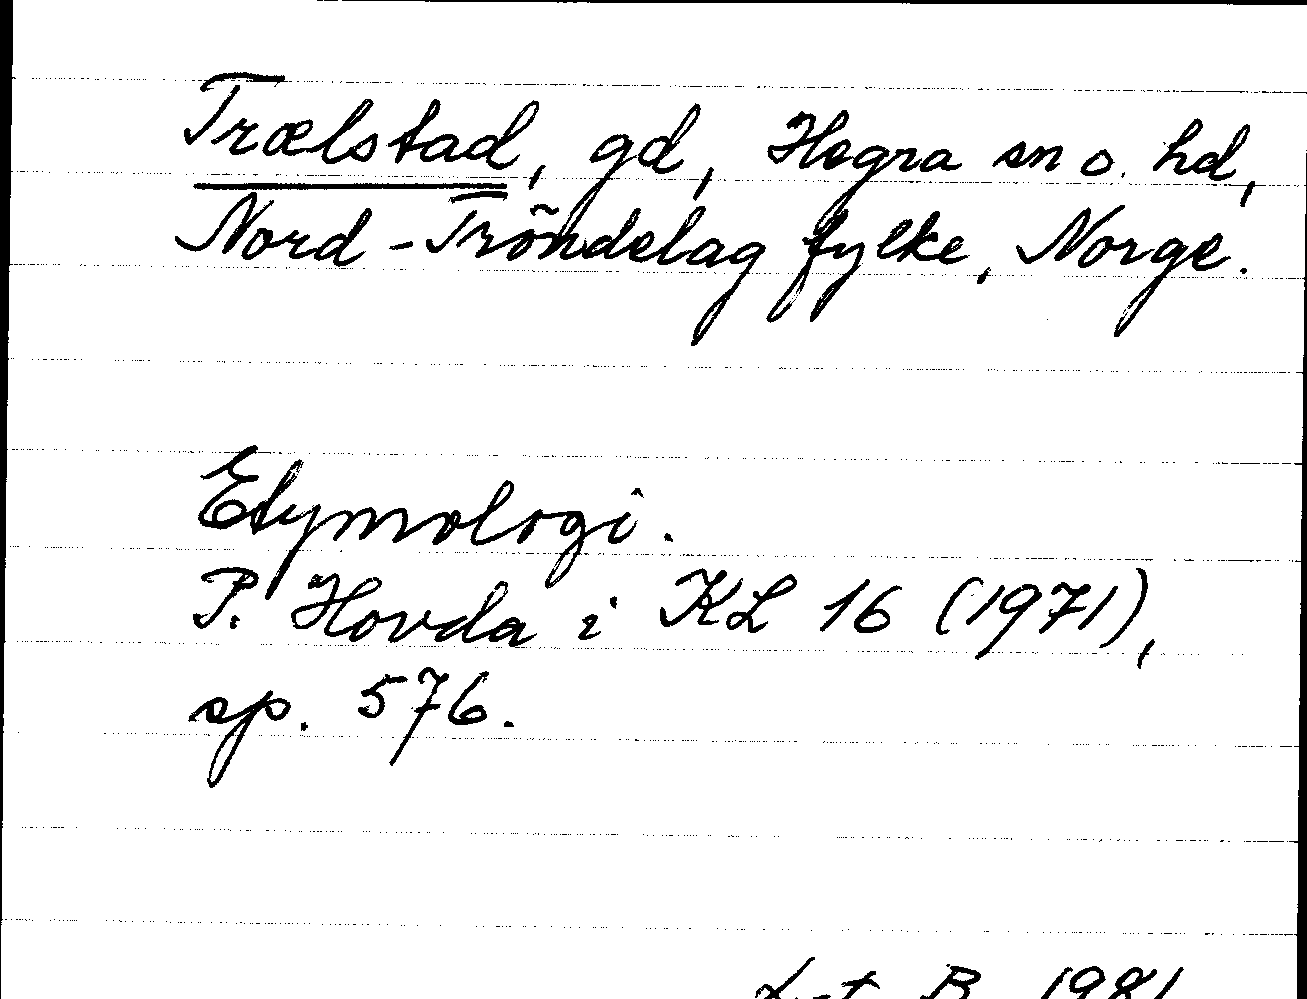 Trælstad, gd, Hegra sn o. hd,
Nord-Tröndelag fylke, Norge.
Etymologi.
P. Hovda i KL 16 (1971),
sp. 576.
B. 1981